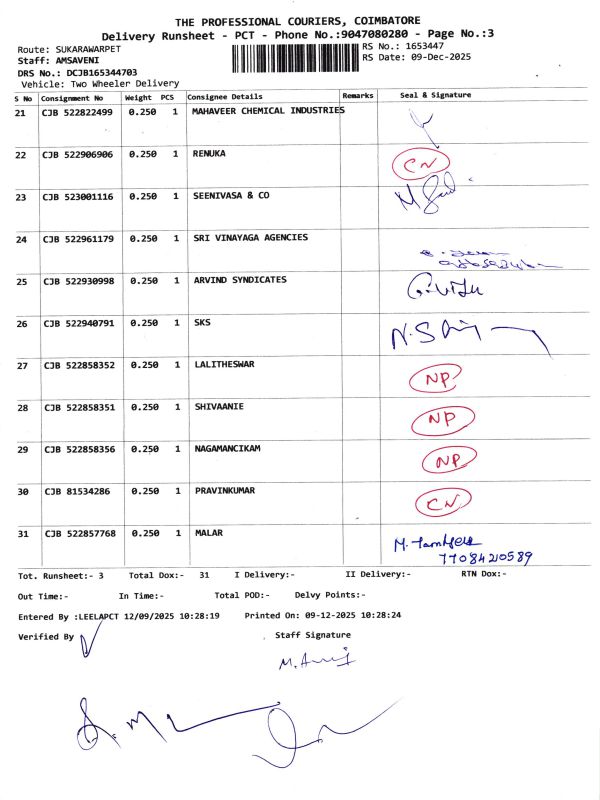 THE PROFESSIONAL COURIERS, COIMBATORE
Delivery Runsheet - PCT - Phone No.:9047080280 - Page No.:3
Route: SUKARAWARPET
RS No.: 1653447
Staff: AMSAVENI
RS Date: 09-Dec-2025
DRS No.: DCJB165344703
Vehicle: Two Wheeler Delivery
S No Consignment No Weight PCS Consignee Details Remarks Seal & Signature
21 CJB 522822499 0.250 1 MAHAVEER CHEMICAL INDUSTRIES
22 CJB 522906906 0.250 1 RENUKA CN
23 CJB 523001116 0.250 1 SEENIVASA & CO
24 CJB 522961179 0.250 1 SRI VINAYAGA AGENCIES
25 CJB 522930998 0.250 1 ARVIND SYNDICATES
26 CJB 522940791 0.250 1 SKS
27 CJB 522858352 0.250 1 LALITHESWAR NP
28 CJB 522858351 0.250 1 SHIVAANIE NP
29 CJB 522858356 0.250 1 NAGAMANCIKAM NP
30 CJB 81534286 0.250 1 PRAVINKUMAR CN
31 CJB 522857768 0.250 1 MALAR M.
7708420589
Tot. Runsheet:- 3 Total Dox:- 31 I Delivery:- II Delivery:- RTN Dox:-
Out Time:- In Time:- Total POD:- Delvy Points:-
Entered By :LEELAPCT 12/09/2025 10:28:19 Printed On: 09-12-2025 10:28:24
Verified By Staff Signature